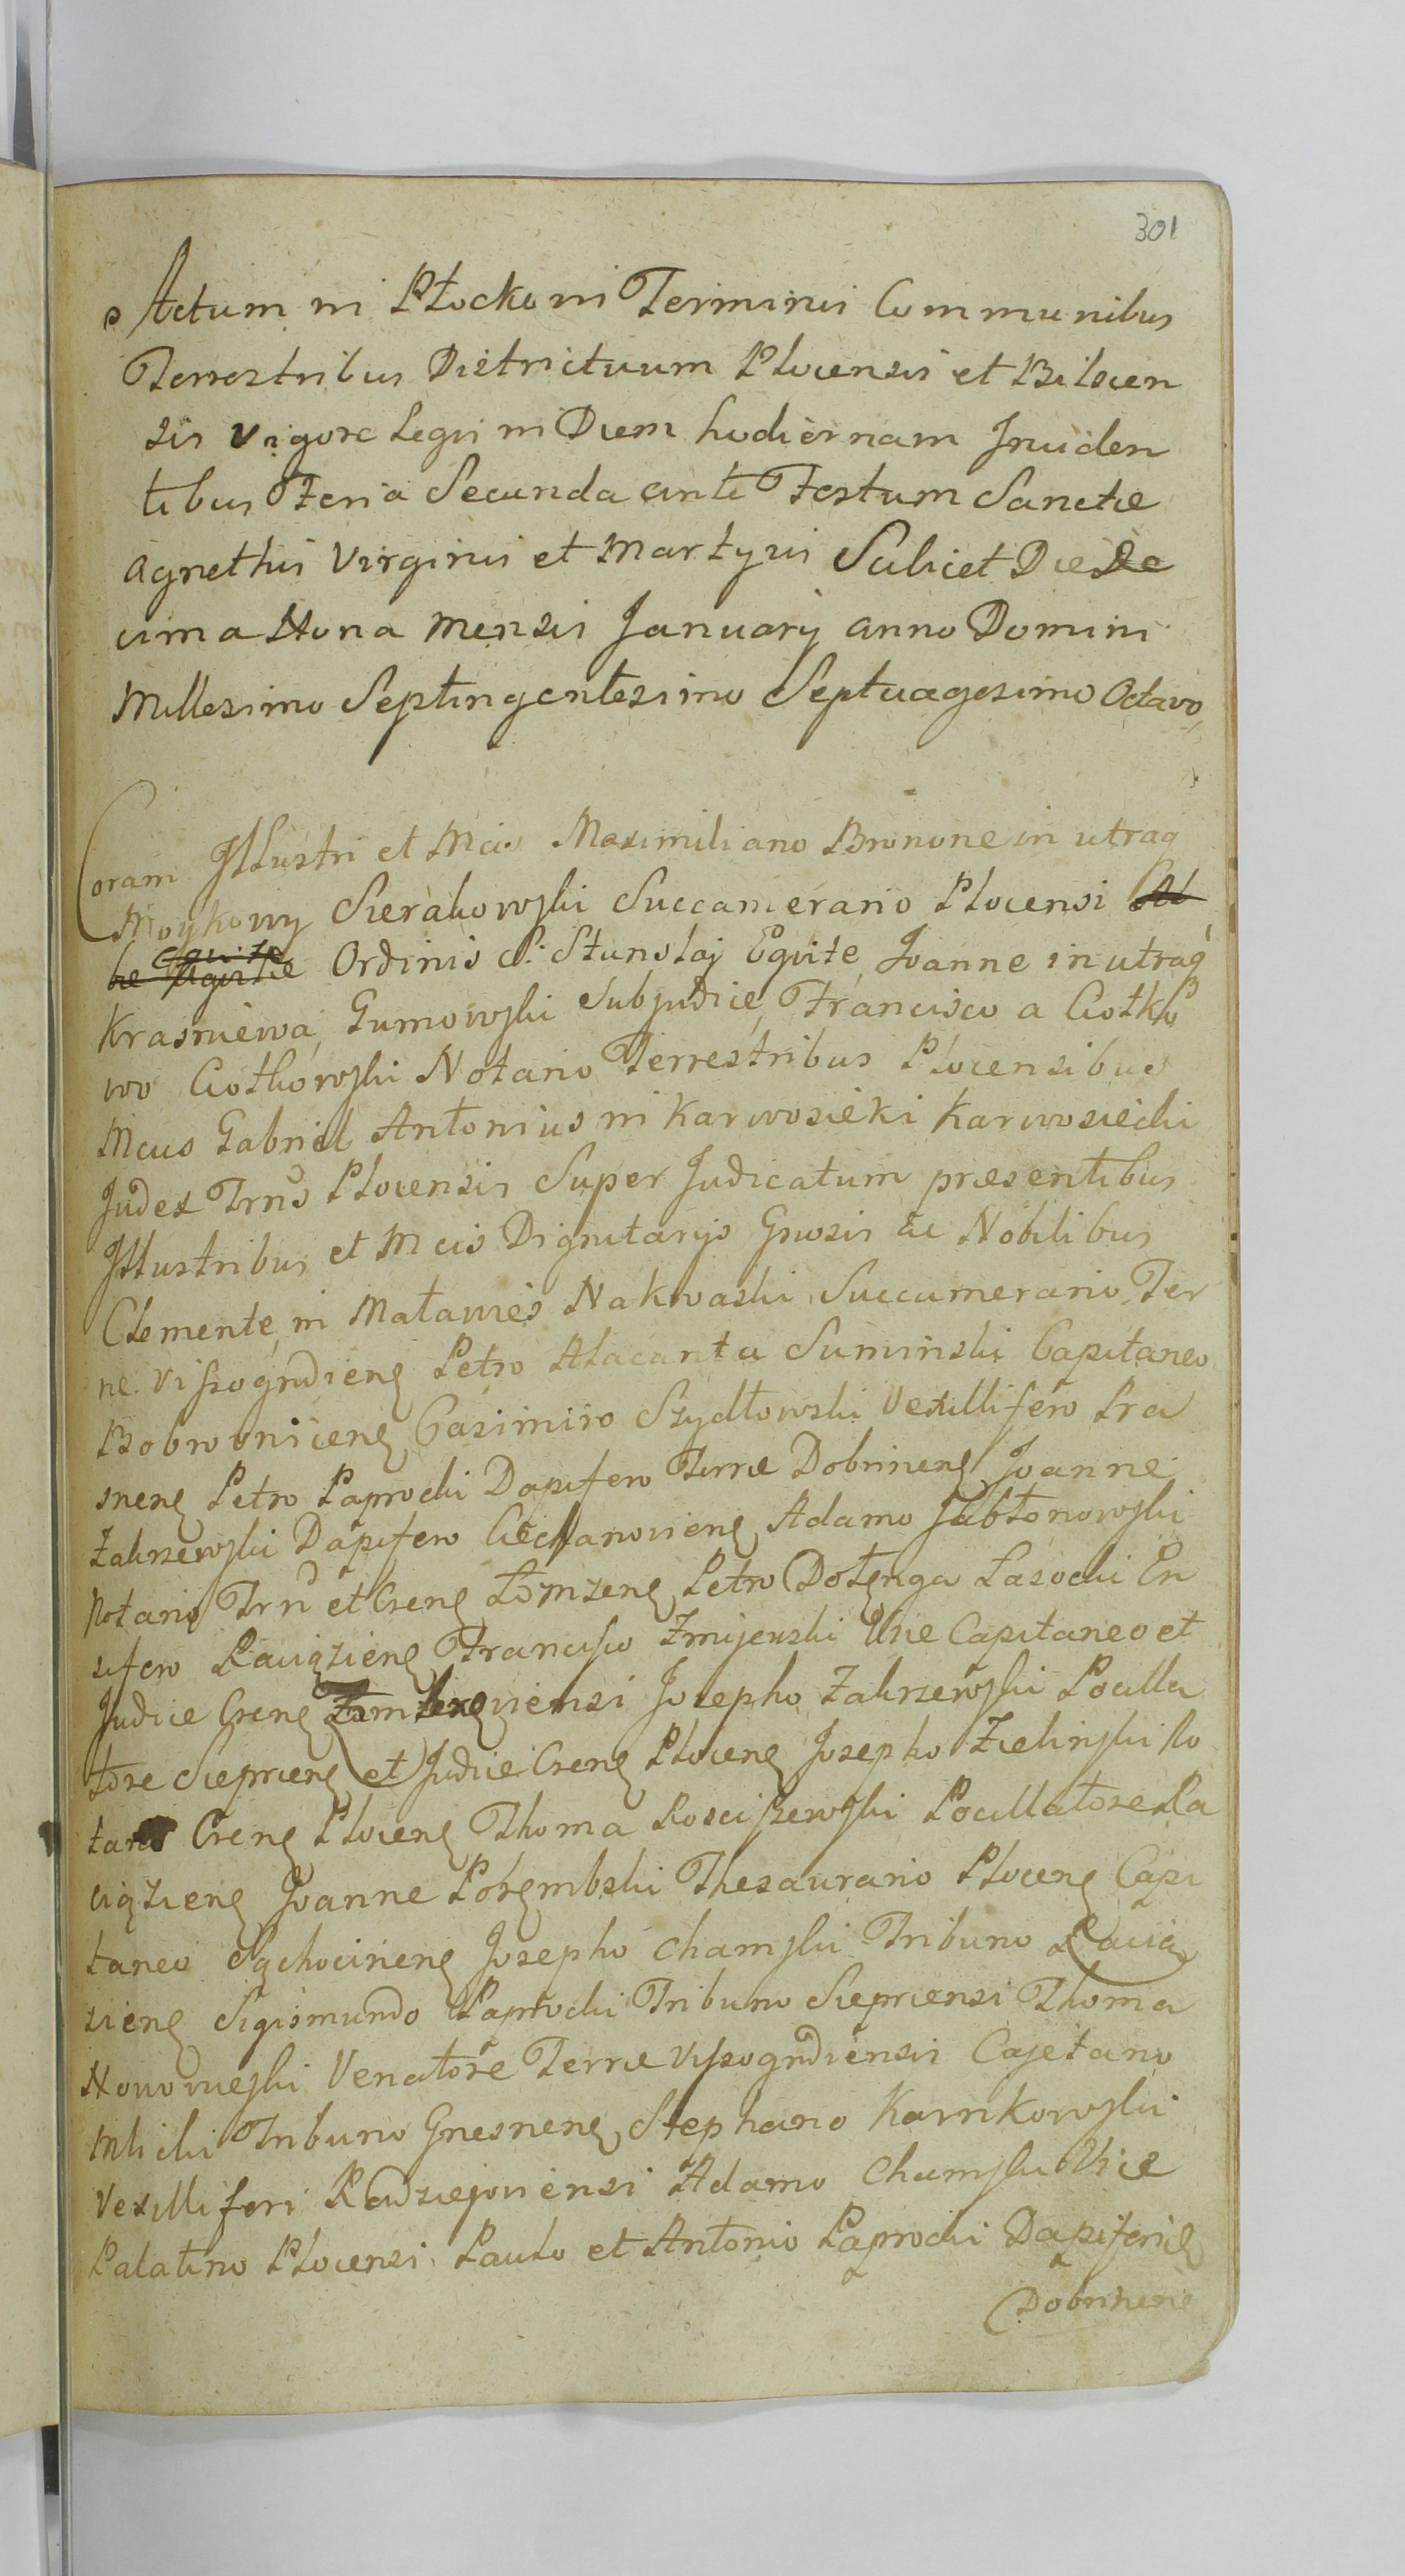 301
Actum in Płocko in Terminis Communibus
Terrestribus Districtuum Plocensis et Bilscen
sis vigore Legis in Diem hodiernam Inciden
tibus Feria Secunda ante Festum Sanctæ
Agnethis Virginis et Martyris Scilicet Die De
cima Nona Mensis January anno Domini
Millesimo Septingentesimo Septuagesimo Octavo
Coram Illustri et Mcis Maximiliano Bronone in utraq
Moykowy Sierakowski Succamerario Plocensi
Ordinis S: Stanslaj Equite Joanne in utraq
Krasniewa Gumowski Subjudice Francisco a Ciotko
wo Ciotkowski Notario Terrestribus Plocensibus
Mcus Gabriel Antonius in Karwosieki Karwosiecki
Judex Trris Plocensis Super Judicatum præsentibus
Illustribus et Mcis Dignitarys Gnosis ac Nobilibus
Clemente in Małavies Nakwaski Succamerario Ter
ræ Vissogrudieng Petro Alacanta Suminski Capitaneo
Bobrowniceng Casimiro Szydłowski Vexillifero Pra
sneng Petro Paprocki Dapifero Terræ Dobrineng Joanne
Zakrzewski Dapifero Ciechanovieng Adamo Jabłonowski
Notario Trri et Creng Łomzeng Petro Dołęnga Lasocki En
sifero Raciązieng Francisco Zmijewski Vice Capitaneo et
Judice Creng viensi Josepho Zakrzewski Pocilla
tore Sieprceng et Judice Creng Ploceng Josepho Zielinski No
tario Creng Ploceng Thoma Kosciszewski Pocillatore Ra
ciązieng Joanne Porembski Thesaurario Ploceng Capi
taneo Sąchocineng Josepho Chamski Tribuno Racią
zieng Sigismundo Paprocki Tribuno Sieprcensi Thoma
Nowowieski Venatore Terræ Vissogrudiensis Cajetano
Mlicki Tribuno Gnesneng Stephano Karnkowski
Vexilliferi Radziejoviensi Adamo Chamski Vice
Palatino Plocensi Paulo et Antonio Paprocki Dapiferis
Dobrinens